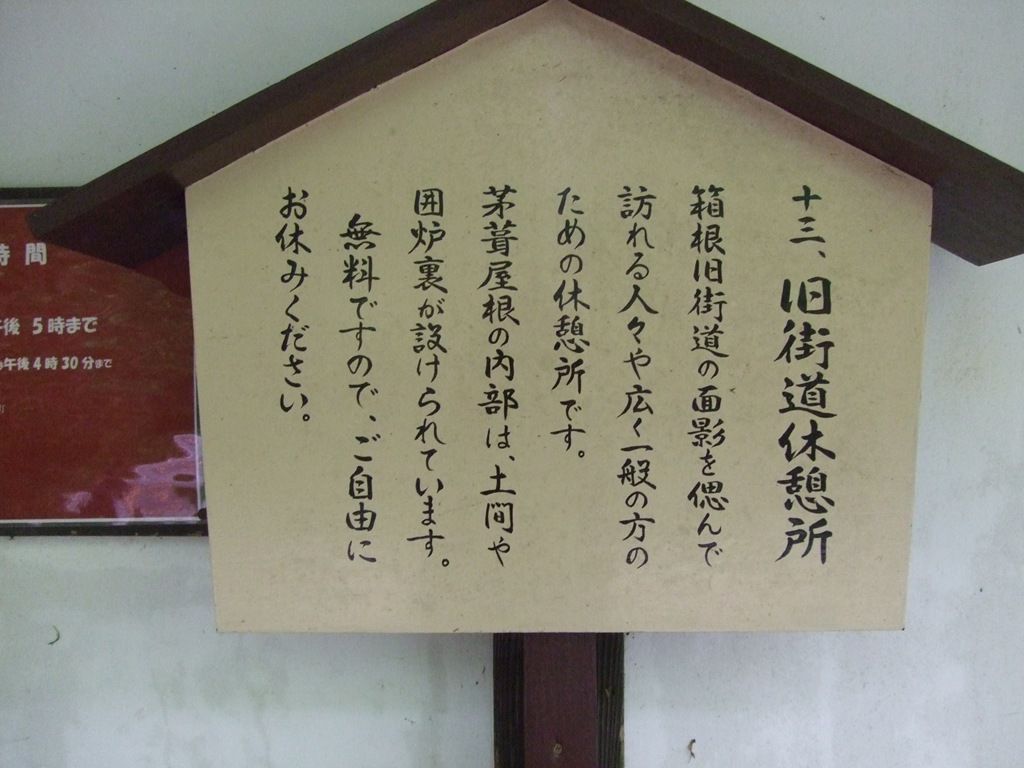 十三、旧街道休憩所
箱根旧街道の面影を偲んで
訪れる人々や広く一般の方の
ための休憩所です。
茅葺屋根の内部は、土間や
囲炉裏が設けられています。
無料ですので、ご自由に
お休みください。
時間
午後5時まで
午後4時30分まで